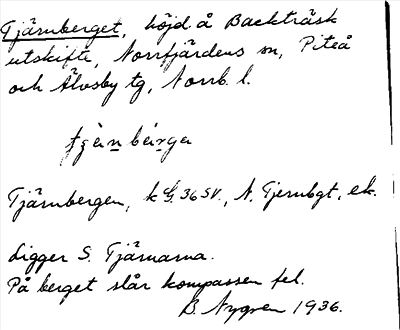 Tjärnberget, höjd å Backträsk
utskifte, Norrfjärdens sn, Piteå
och Älvsby tg, Norrb. l.
Tjärnbergen, 36 SV., N. Tjernbgt, ek.
Ligger S. Tjärnarna.
På berget slår kompassen fel.
B. Nygren 1936.